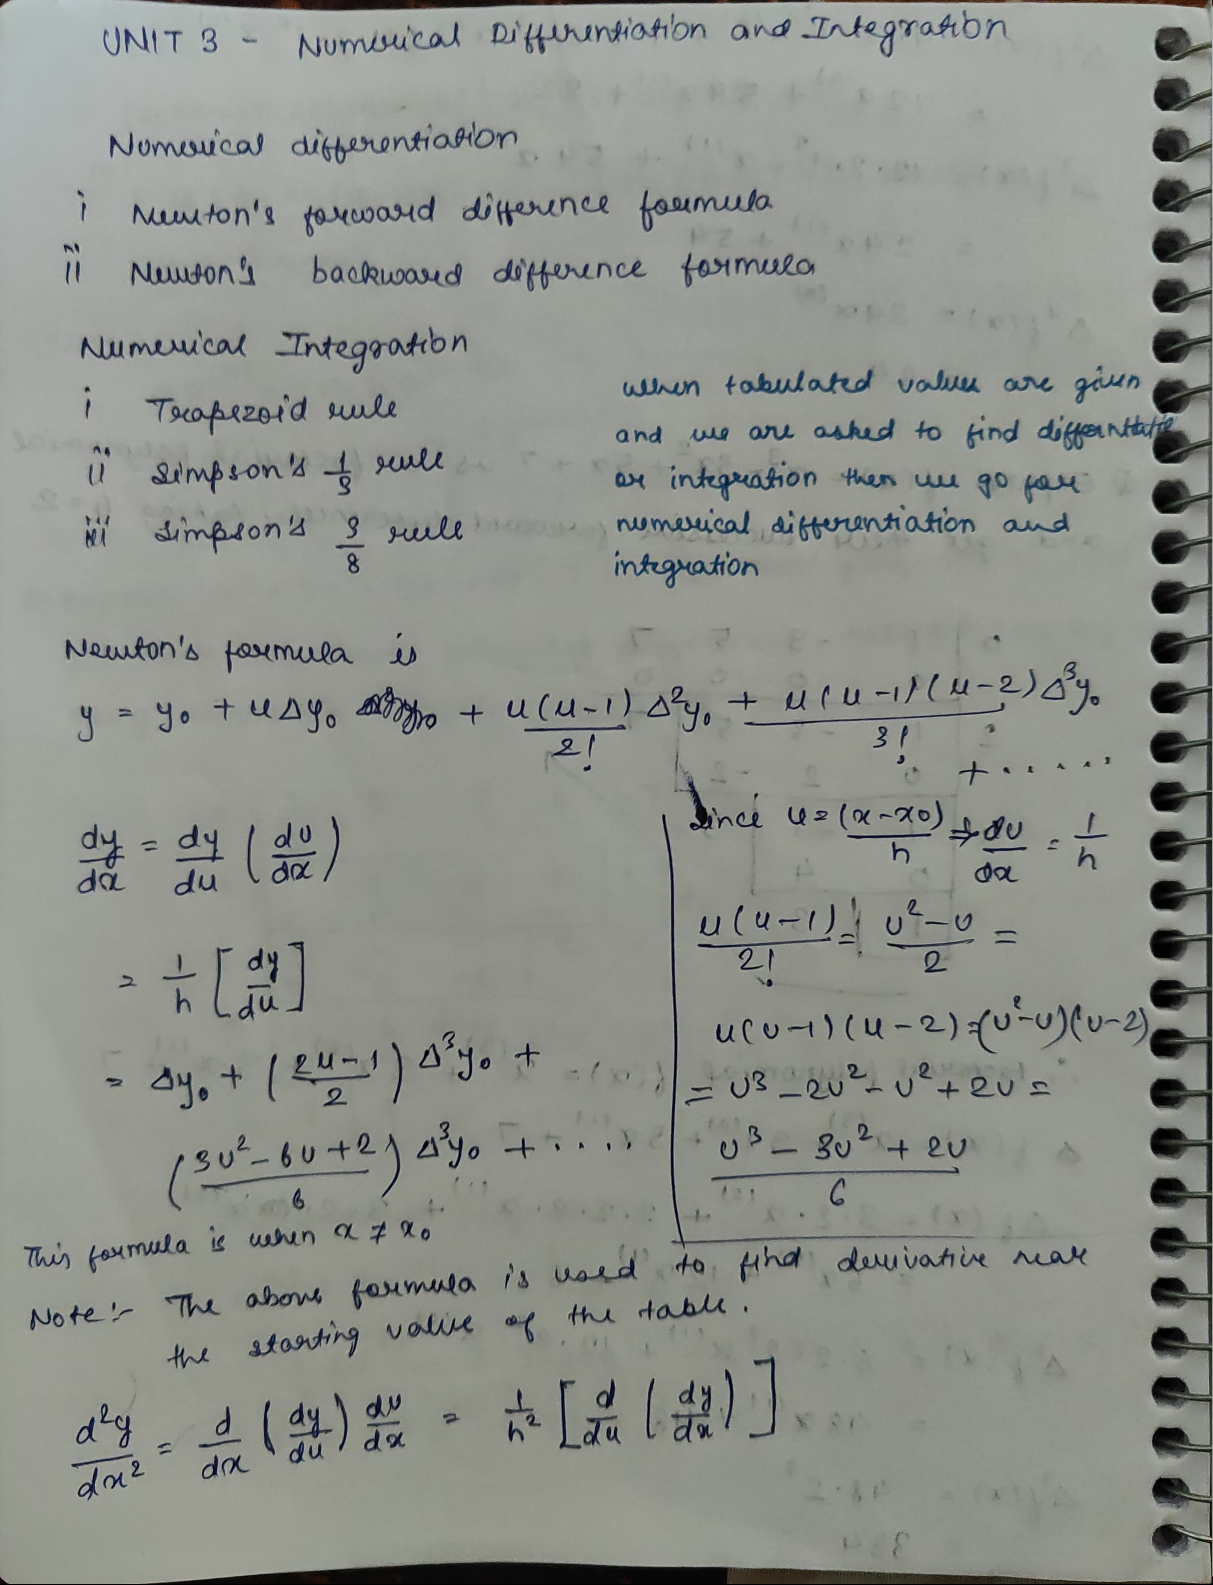 UNIT 3 - Numerical Differentiation and Integration
Numerical differentiation
i Newton's forward difference formula
ii Newton's backward difference formula
Numerical Integration
i Trapezoid rule
ii Simpson's 1/3 rule
iii Simpson's 3/8 rule
when tabulated values are given
and we are asked to find differntiatio
or integration then we go for
numerical differentiation and
integration
Newton's formula is
y = y₀ + uΔy₀ + u(u-1)/2! Δ²y₀ + u(u-1)(u-2)/3! Δ³y₀
+ .....
dy/dx = dy/du (du/dx)
= 1/h [dy/du]
= Δy₀ + (2u-1/2) Δ³y₀ +
(3u²-6u+2/6) Δ³y₀ + ....
Since u = (x-x0)/h ⇒ du/dx = 1/h
u(u-1)/2! = u²-u/2 =
u(u-1)(u-2) = (u²-u)(u-2)
= u³-2u²-u²+2u =
u³-3u²+2u/6
This formula is when x ≠ x₀
Note:- The above formula is used to find derivative near
the starting value of the table.
d²y/dx² = d/dx (dy/du) du/dx = 1/h² [d/du (dy/dx)]